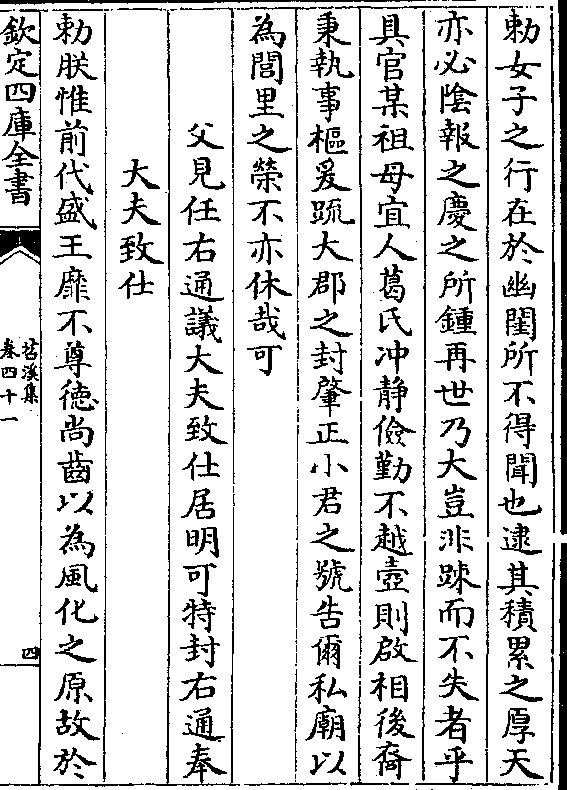 勅女子之行在於幽閨所不得聞也逮其積累之厚天
亦必隂報之慶之所鍾再世乃大豈非踈而不失者乎
具官某祖母宜人葛氏冲静儉勤不越壼則啟相後裔
秉執事樞爰䟽大郡之封肇正小君之號告爾私廟以
為閭里之榮不亦休哉可
父見任右通議大夫致仕居明可特封右通奉
大夫致仕
勅朕惟前代盛王靡不尊徳尚齒以為風化之原故於
欽定四庫全書
苕溪集
卷四十一
四